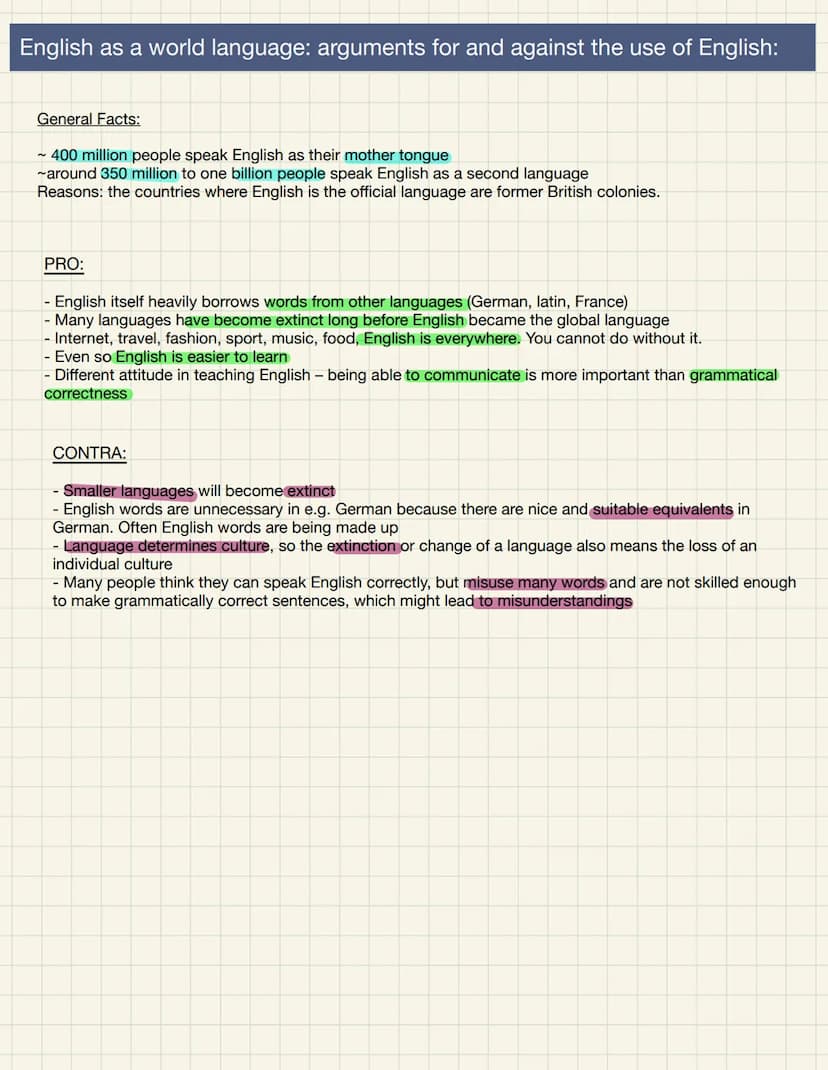 English as a world language: arguments for and against the use of English:
General Facts:
~ 400 million people speak English as their mother tongue
~around 350 million to one billion people speak English as a second language
Reasons: the countries where English is the official language are former British colonies.
PRO:
- English itself heavily borrows words from other languages (German, latin, France)
- Many languages have become extinct long before English became the global language
- Internet, travel, fashion, sport, music, food, English is everywhere. You cannot do without it.
- Even so English is easier to learn
- Different attitude in teaching English – being able to communicate is more important than grammatical
correctness
CONTRA:
- Smaller languages will become extinct
- English words are unnecessary in e.g. German because there are nice and suitable equivalents in
German. Often English words are being made up
- Language determines culture, so the extinction or change of a language also means the loss of an
individual culture
- Many people think they can speak English correctly, but misuse many words and are not skilled enough
to make grammatically correct sentences, which might lead to misunderstandings